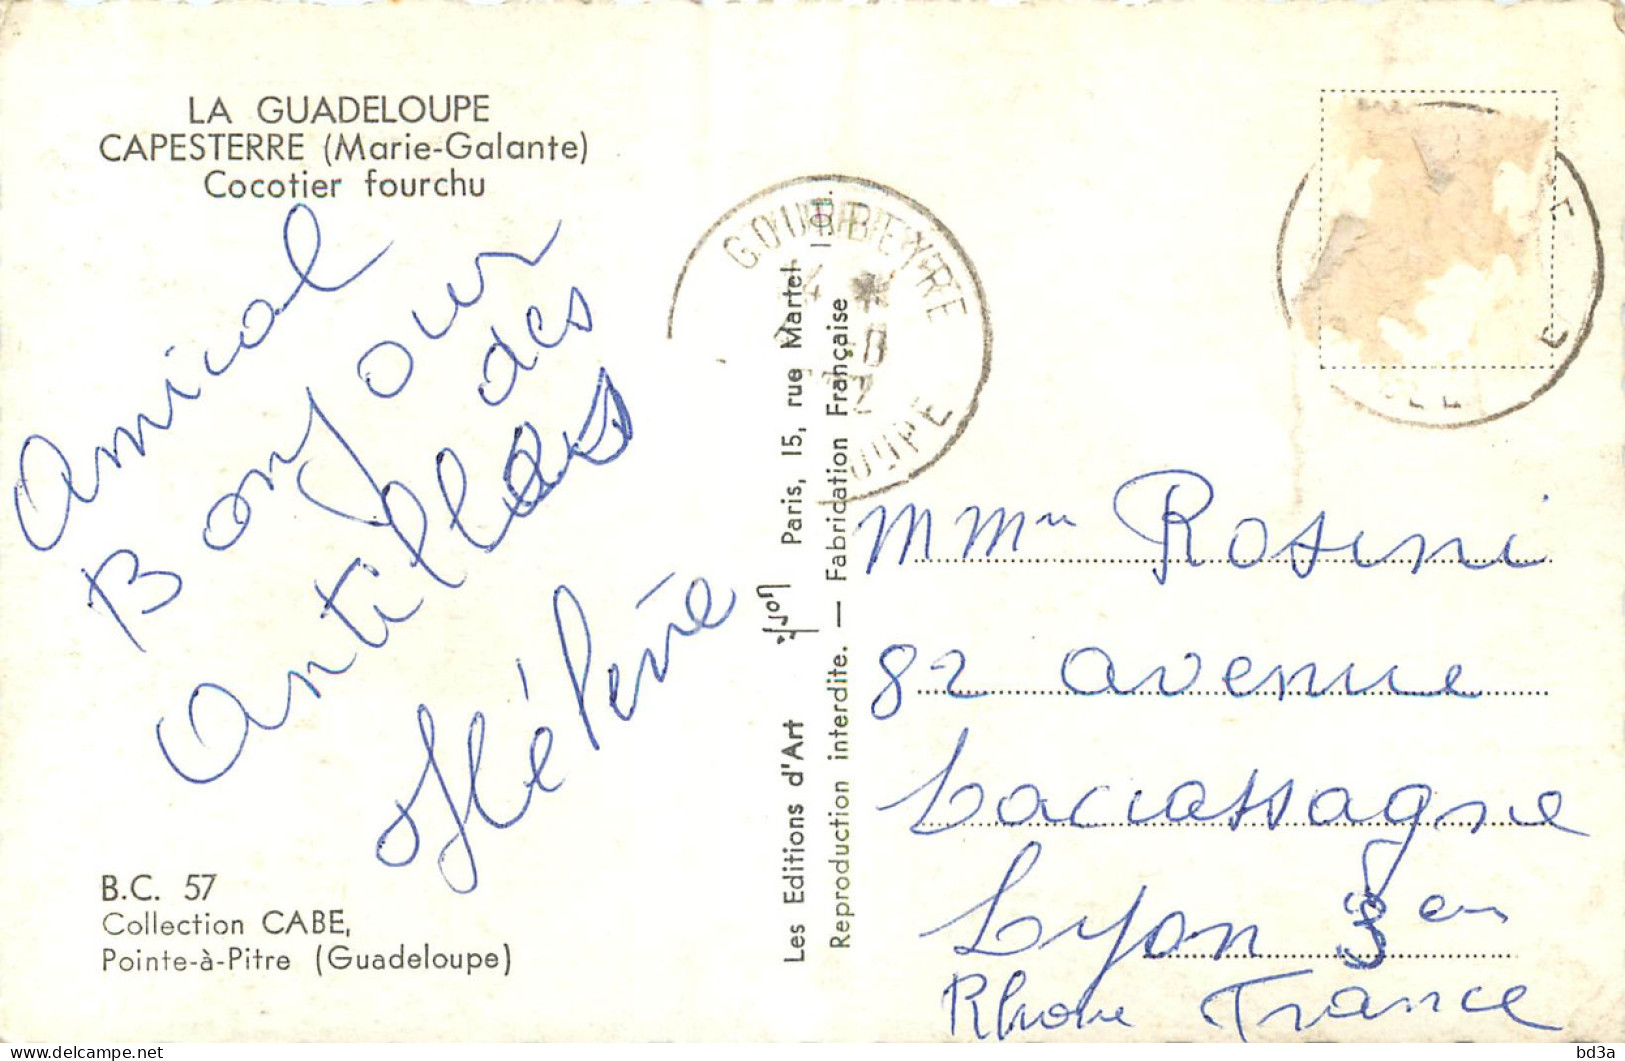 LA GUADELOUPE
CAPESTERRE (Marie-Galante)
Cocotier fourchu
Amical
Bonjour
des
Antilles
Hélène
B.C. 57
Collection CABE,
Pointe-à-Pitre (Guadeloupe)
Les Editions d'Art Yvon Paris, 15, rue Martel
Reproduction interdite. — Fabrication Française
GOURBEYRE
Rosini
82 avenue
Lacassagne
Lyon 3em
Rhone France
bd3a